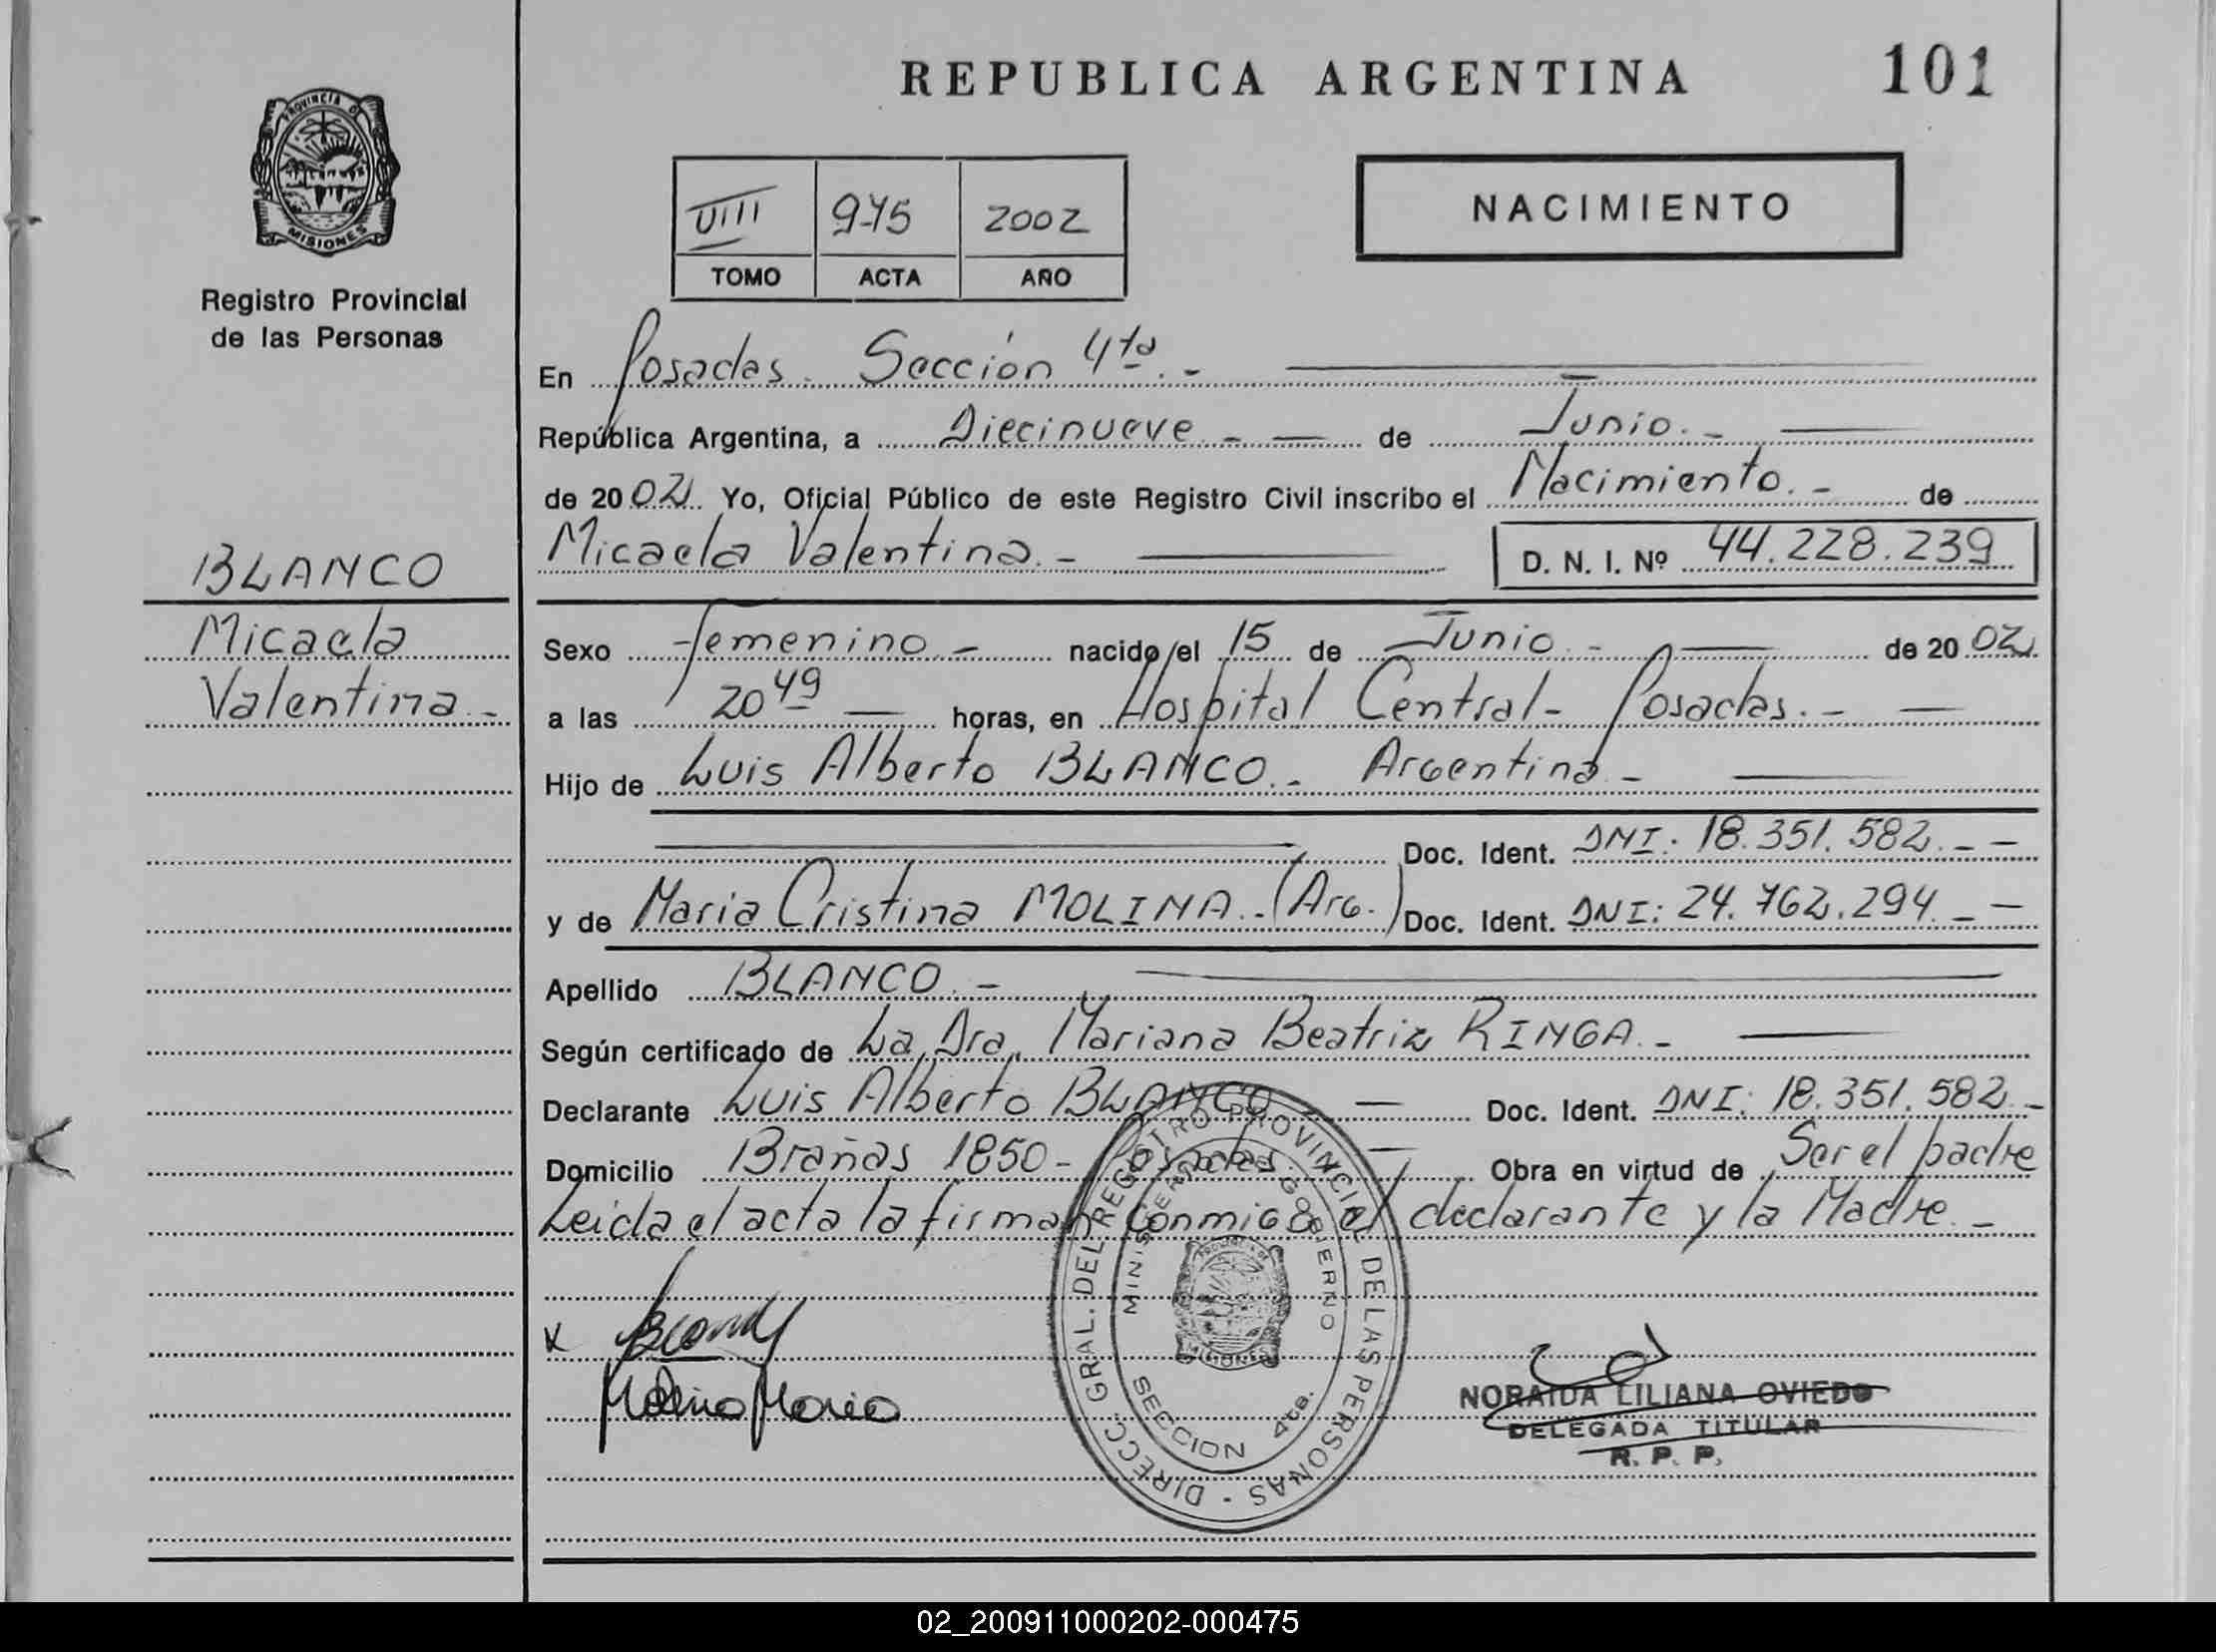 REPUBLICA ARGENTINA 101
PROVINCIA DE
MISIONES
Registro Provincial
de las Personas
VIII 975 2002
TOMO ACTA AÑO
NACIMIENTO
BLANCO
Micaela
Valentina.-
En Posadas. Sección 4ta.-
República Argentina, a Diecinueve.- de Junio.-
de 2002. Yo, Oficial Público de este Registro Civil inscribo el Nacimiento.- de
Micaela Valentina.- D. N. I. Nº 44.228.239
Sexo femenino.- nacido el 15 de Junio.- de 2002
a las 20 49 horas, en Hospital Central- Posadas.-
Hijo de Luis Alberto BLANCO.- Argentina-
Doc. Ident. DNI: 18.351.582.-
y de Maria Cristina MOLINA.-(Arg.) Doc. Ident. DNI: 24.762.294.-
Apellido BLANCO.-
Según certificado de La Dra. Mariana Beatriz RINGA.-
Declarante Luis Alberto BLANCO Doc. Ident. DNI: 18.351.582.-
Domicilio Brañas 1850- Posadas. Obra en virtud de Ser el padre
Leida el acta la firman conmigo el declarante y la Madre.-
DIRECC. GRAL. DEL REGISTRO PROVINCIAL DE LAS PERSONAS -
MINISTERIO DE GOBIERNO
MISIONES
SECCION 4ta.
x
Molina Maria
NORAIDA LILIANA OVIEDO
DELEGADA TITULAR
R. P. P.
02_200911000202-000475